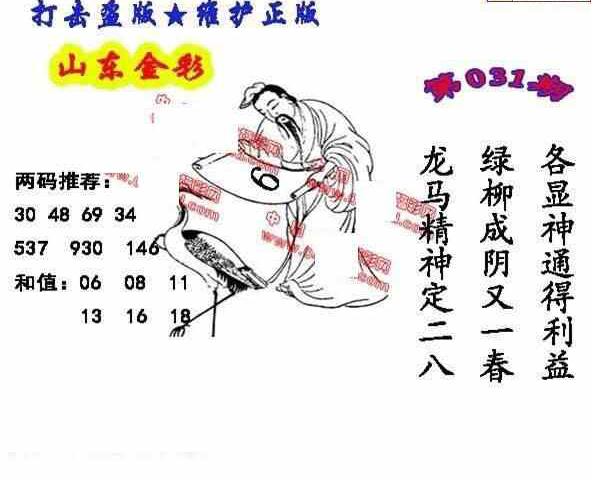 打击盗版★维护正版
山东金彩
第031期
两码推荐：
30 48 69 34
537 930 146
和值：06 08 11
13 16 18
6
各显神通得利益
绿柳成阴又一春
龙马精神定二八